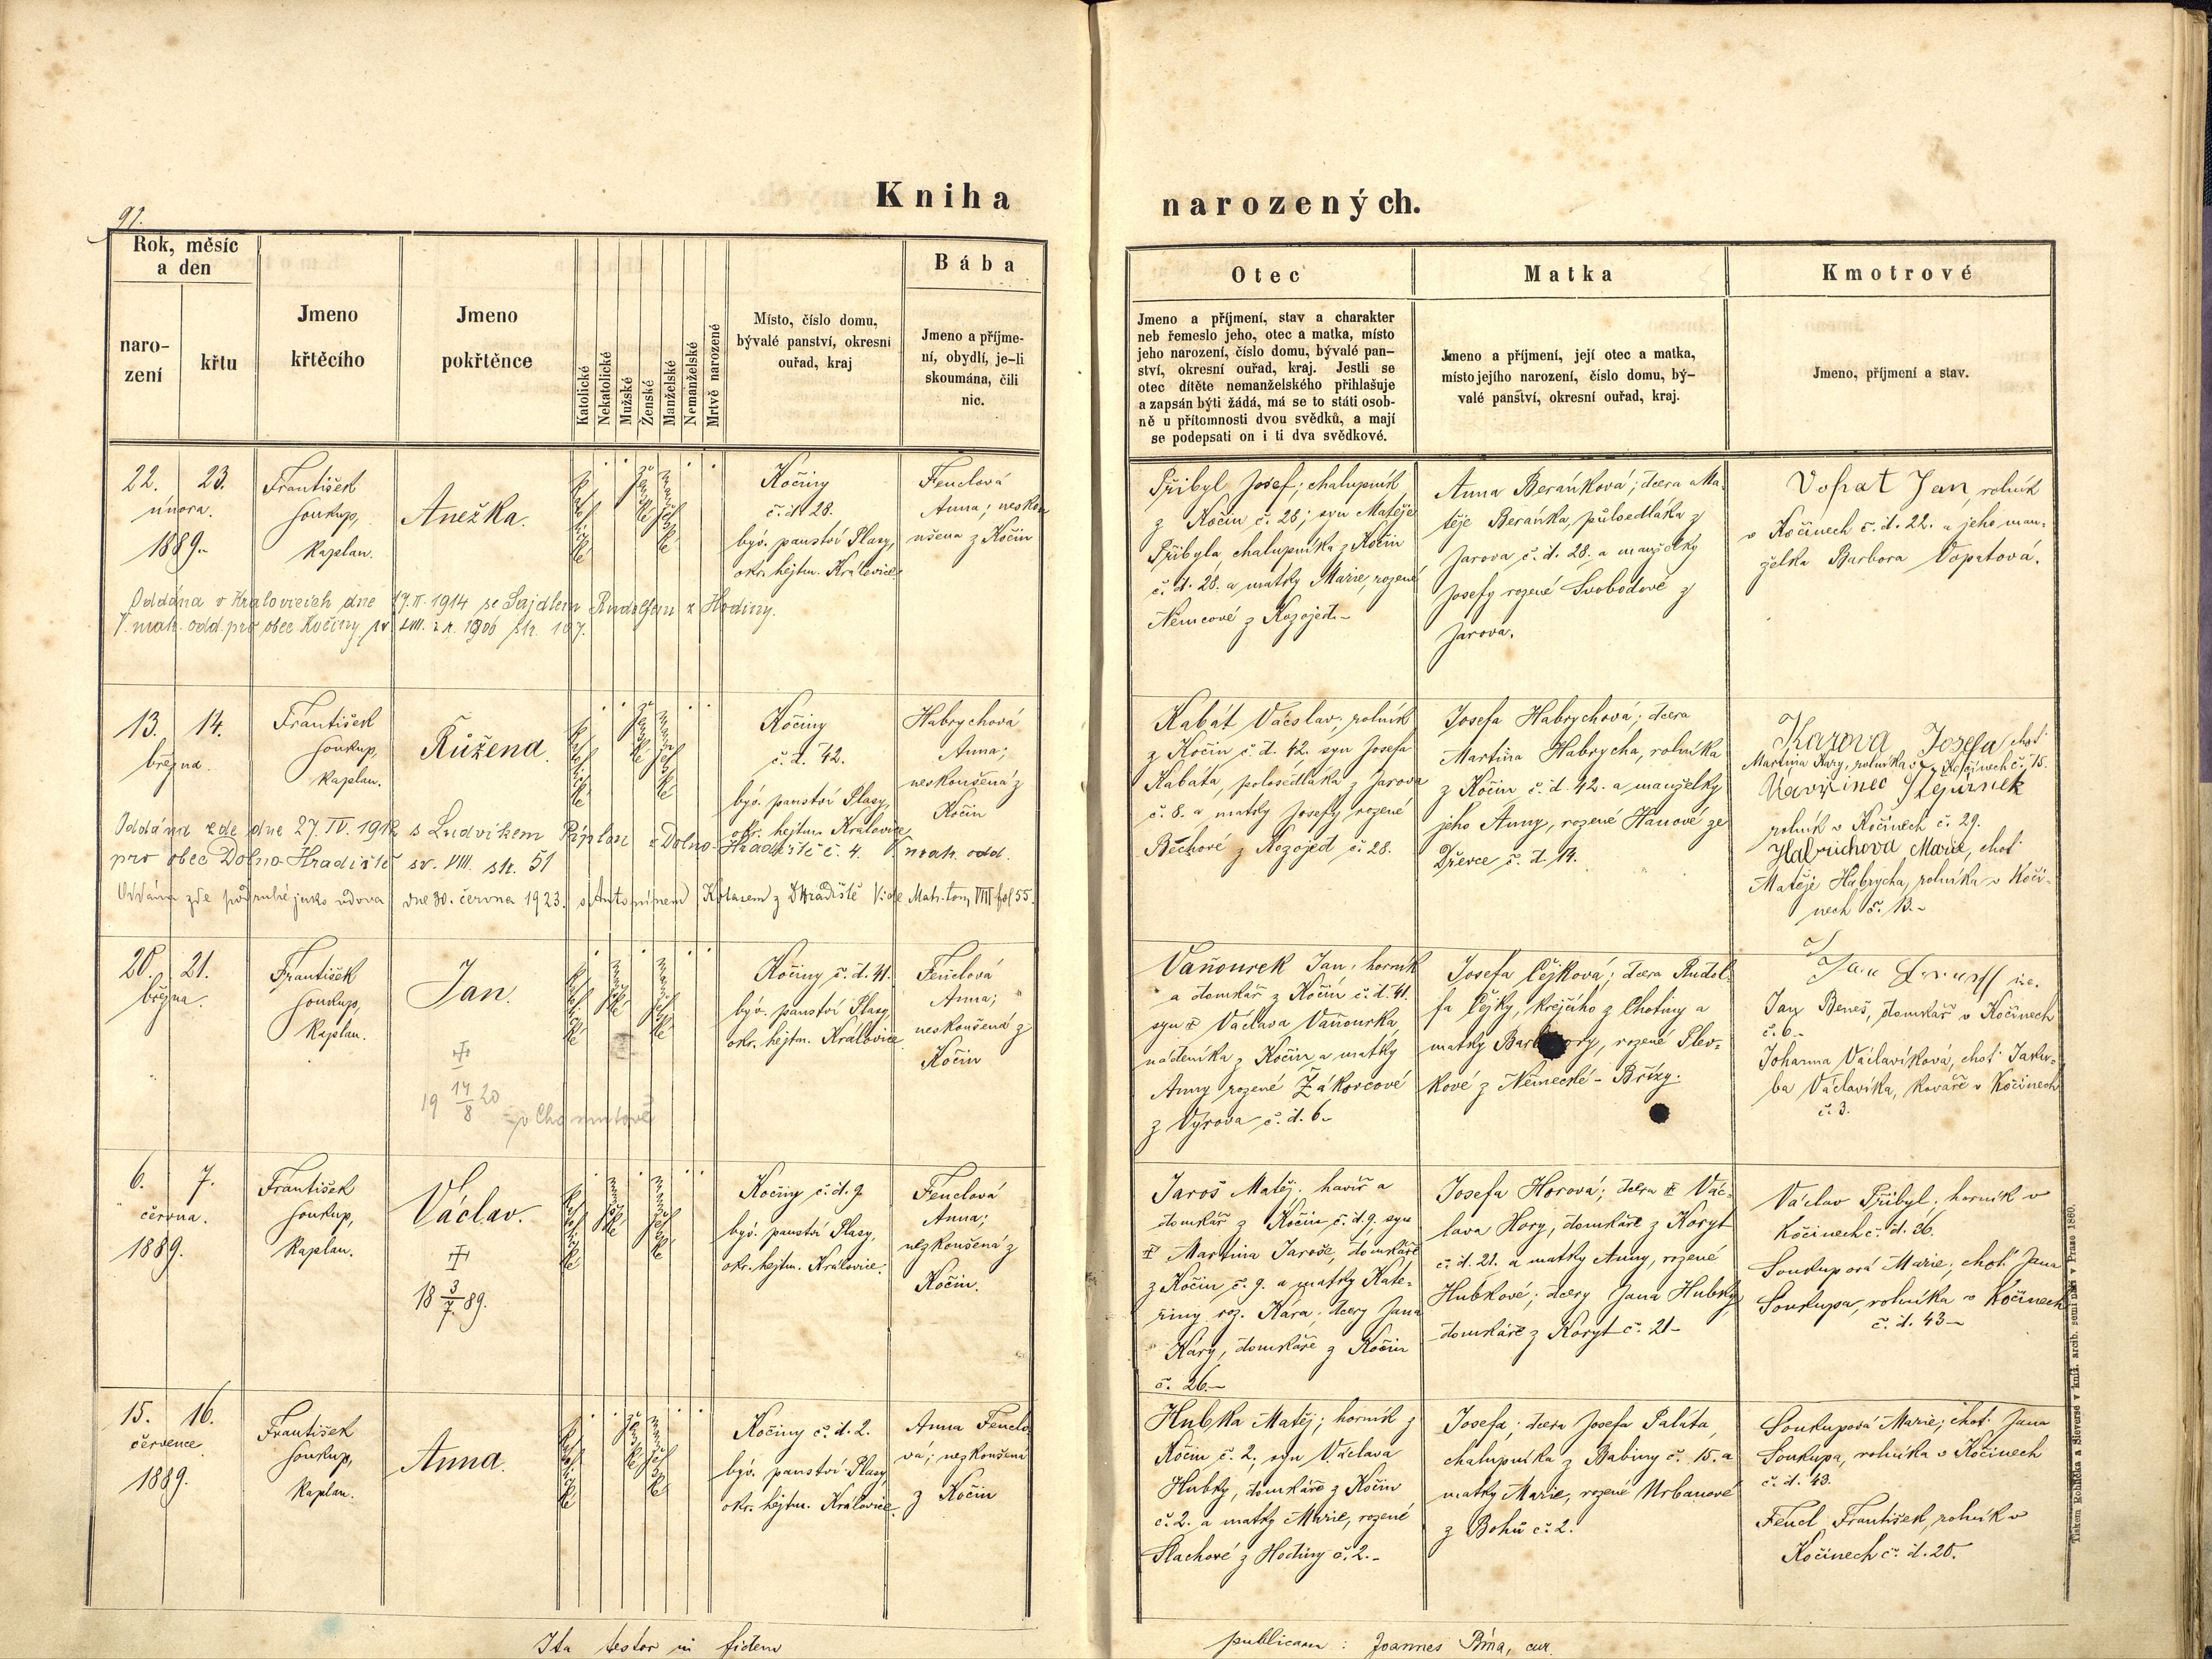 Kniha
narozených.
91.
Rok, měsíc
a den
naro-
zení
křtu
Jmeno
křtěcího
Jmeno
pokřtěnce
Katolické
Nekatolické
Mužské
Ženské
Manželské
Nemanželské
Mrtvě narozené
Místo, číslo domu,
bývalé panství, okresní
ouřad, kraj
Bába
Jmeno a příjme-
ní, obydlí, je-li
skoumána, čili
nic.
Otec
Jmeno a příjmení, stav a charakter
neb řemeslo jeho, otec a matka, místo
jeho narození, číslo domu, bývalé pan-
ství, okresní ouřad, kraj. Jestli se
otec dítěte nemanželského přihlašuje
a zapsán býti žádá, má se to státi osob-
ně u přítomnosti dvou svědků, a mají
se podepsati on i ti dva svědkové.
Matka
Jmeno a příjmení, její otec a matka,
místo jejího narození, číslo domu, bý-
valé panství, okresní ouřad, kraj.
Kmotrové
Jmeno, příjmení a stav.
22. 23.
února.
1889.
František
Soukup,
kaplan.
Anežka.
Katolické
Ženské
Manželské
Kočiny
č. d. 28.
býv. panství Plasy,
okr. hejtm. Kralovice
Fenclová
Anna; neskou
ušena z Kočin
Přibyl Josef; chalupník
z Kočin č. 28; syn Matěje
Přibyla, chalupníka z Kočin
č. d. 28. a matky Marie, rozené
Němcové z Kozojed.-
Anna Beránková; dcera Ma-
těje Beránka, půlsedláka z
Jarova č. d. 28. a manželky
Josefy rozené Svobodové z
Jarova.
Vopat Jan, rolník
v Kočinech č. d. 22. a jeho man-
želka Barbora Vopatová.
Oddána v Kralovicích dne 17. II. 1914 se Sajdlem Rudolfem z Hodiny.
V. mat. odd. pro obec Kočiny sv. VIII. z r. 1906 str. 107.
13. 14.
března.
František
Soukup,
kaplan.
Růžena.
Katolické
Ženské
Manželské
Kočiny
č. d. 42.
býv. panství Plasy,
okr. hejtm. Kralovice
Habrychová
Anna;
neskoušená z
Kočin
Kabát Václav; rolník
z Kočin č. d. 42. syn Josefa
Kabáta, polosedláka z Jarova
č. 8. a matky Josefy, rozené
Bechové z Kozojed č. 28.
Josefa Habrychová; dcera
Martina Habrycha, rolníka
z Kočin č. d. 42. a manželky
jeho Anny, rozené Hanové ze
Dřevce č. d. 14.
Karova Josefa choť
Martina Kary, rolníka v Kočinech č. 15.
Vavřinec Štepánek
rolník v Kočinech č. 29.
Habrichová Marie, choť
Matěje Habrycha, rolníka v Koči-
nech č. 13.-
Oddána zde dne 27. IV. 1912 s Ludvíkem z Dolno-Hradiště č. 4. V. mat. odd.
pro obec Dolno-Hradiště sv. VIII. str. 51
Oddána zde podruhé jako vdova dne 30. června 1923. s Antonínem z D Hradiště Vide Matr. tom VIII fol 55.
20. 21.
března.
František
Soukup,
kaplan.
Jan.
19 14/8 20
v Chomutově
Katolické
mužské
Manželské
Kočiny č. d. 41.
býv. panství Plasy,
okr. hejtm. Kralovice
Fenclová
Anna;
neskoušená z
Kočin
Vaňourek Jan, horník
a domkář z Kočin č. d. 41.
syn Václava Vaňourka,
nádeníka z Kočin a matky
Anny rozené Žákovcové
z Výrova č. d. 6.-
Josefa Čejková; dcera Rudol-
fa Čejky, krejčího z Chotiny a
matky Barbory, rozené Slev-
kové z Německé-Břízy.
Jan Beneš, domkář v Kočinech
č. 6.-
Johanna Václavíková, choť Jaku-
ba Václavíka, kováře v Kočinech
č. 3.
6. 7.
června.
1889.
František
Soukup,
kaplan.
Václav.
18 3/7 89.
Katolické
mužské
Manželské
Kočiny č. d. 9
býv. panství Plasy,
okr. hejtm. Kralovice.
Fenclová
Anna;
nezkoušená z
Kočin.
Jaroš Matěj, havíř a
domkář z Kočin, č. d. 9. syn
Martina Jaroše, domkáře
z Kočin č. 9. a matky Kate-
řiny roz. Kara, dcery Jana
Káry, domkáře z Kočin
č. 26.-
Josefa Horová; dcera Vác-
lava Hory, domkáře z Koryt
č. d. 21. a matky Anny, rozené
Hubkové; dcery Jana Hubky,
domkáře z Koryt č. 21-
Václav Přibyl, horník v
Kočinech č. d. 36.
Soukupová Marie, choť Jana
Soukupa, rolníka v Kočinech
č. d. 43-
15. 16.
července
1889.
František
Soukup,
kaplan.
Anna.
Katolické
Ženské
Manželské
Kočiny č. d. 2.
býv. panství Plasy,
okr. hejtm. Kralovice.
Anna Fenclo
vá; nezkoušená
z Kočin
Hubka Matěj; horník z
Kočin č. 2, syn Václava
Hubky, domkáře z Kočin
č. 2. a matky Marie, rozené
Šlachové z Hodiny č. 2.-
Josefa, dcera Josefa Paláta,
chalupníka z Babiny č. 15. a
matky Marie, rozené Urbanové
z Bohů č. 2.
Soukupová Marie; choť Jana
Soukupa, rolníka v Kočinech
č. d. 43.
Fencl František, rolník v
Kočinech č. d. 20.
Ita testor in fidem
publicam: Joannes cur.
Tiskem Rohlíčka a Sieverse v kníž. arcib. semináři v Praze 1860.